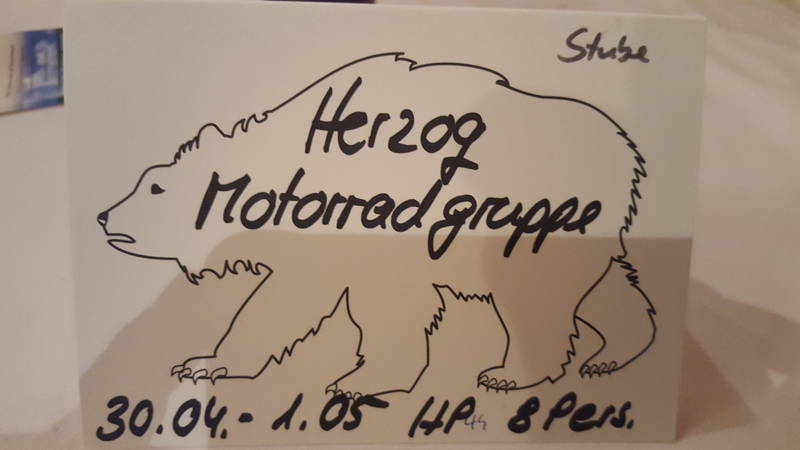 Stube
Herzog
Motorradgruppe
30.04.- 1.05 HP 8 Pers.